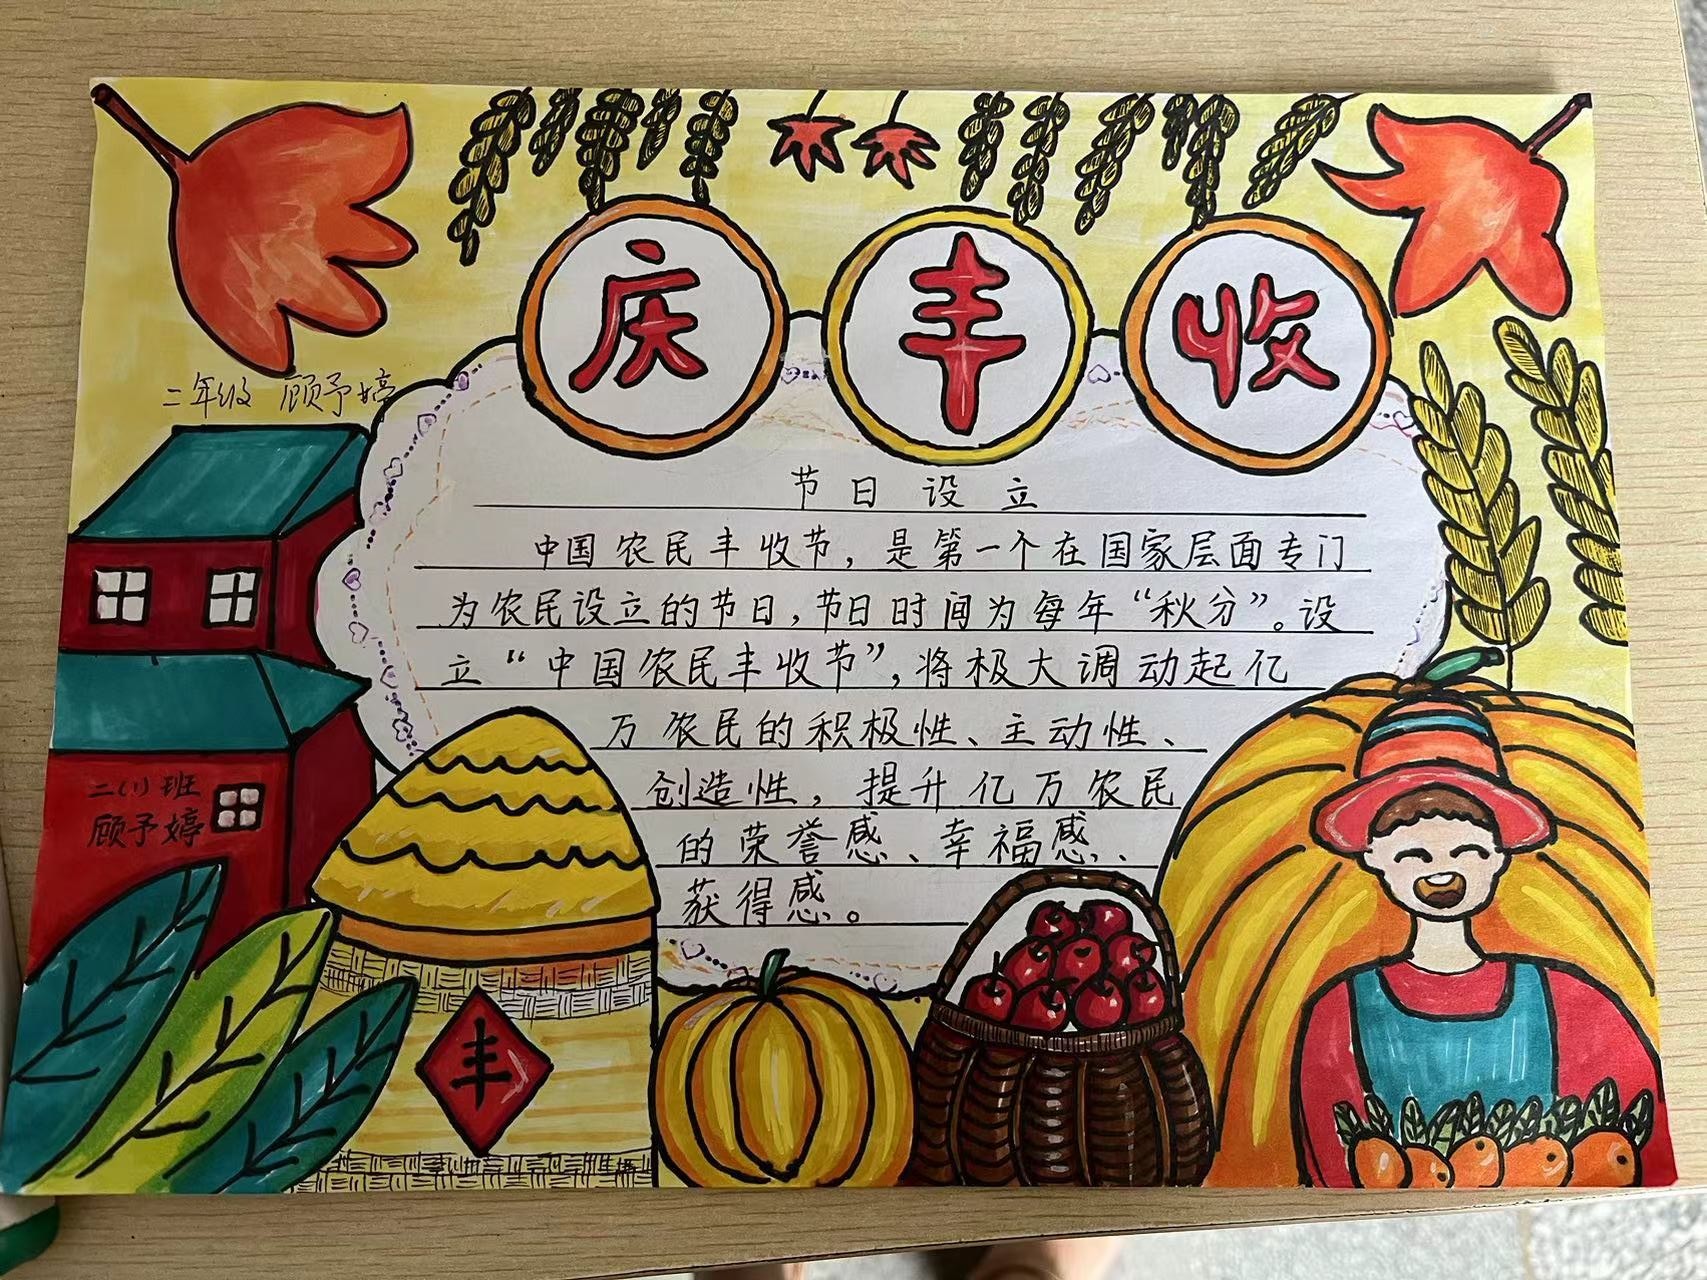 庆丰收
二年级 顾予婷
节日设立
中国农民丰收节，是第一个在国家层面专门
为农民设立的节日，节日时间为每年“秋分”。设
立“中国农民丰收节”，将极大调动起亿
万农民的积极性、主动性、
创造性，提升亿万农民
的荣誉感、幸福感、
获得感。
二(1)班
顾予婷
丰